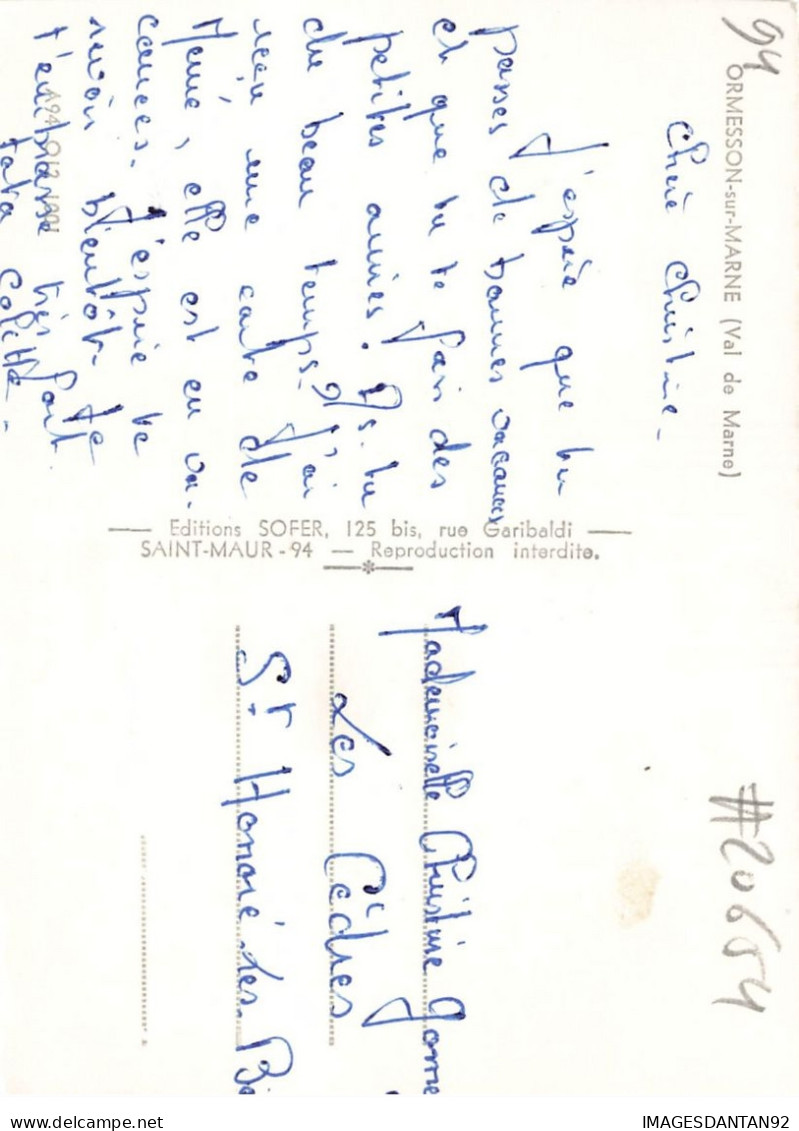 94
ORMESSON-sur-MARNE (Val de Marne)
Chère Christine -
J'espère que tu
passes de bonnes vacances
et que tu te fais des
petites amies. As-tu
du beau temps - J'ai
reçu une carte de
Mémé, elle est en va-
cances. J'espère te
revoir bientôt. Je
t'embrasse très fort
tata Colette -
Editions SOFER, 125 bis, rue Garibaldi
SAINT-MAUR - 94 — Reproduction interdite.
Mademoiselle Christine
Les Cèdres
St Honoré-Les-
#20654
IMAGESDANTAN92